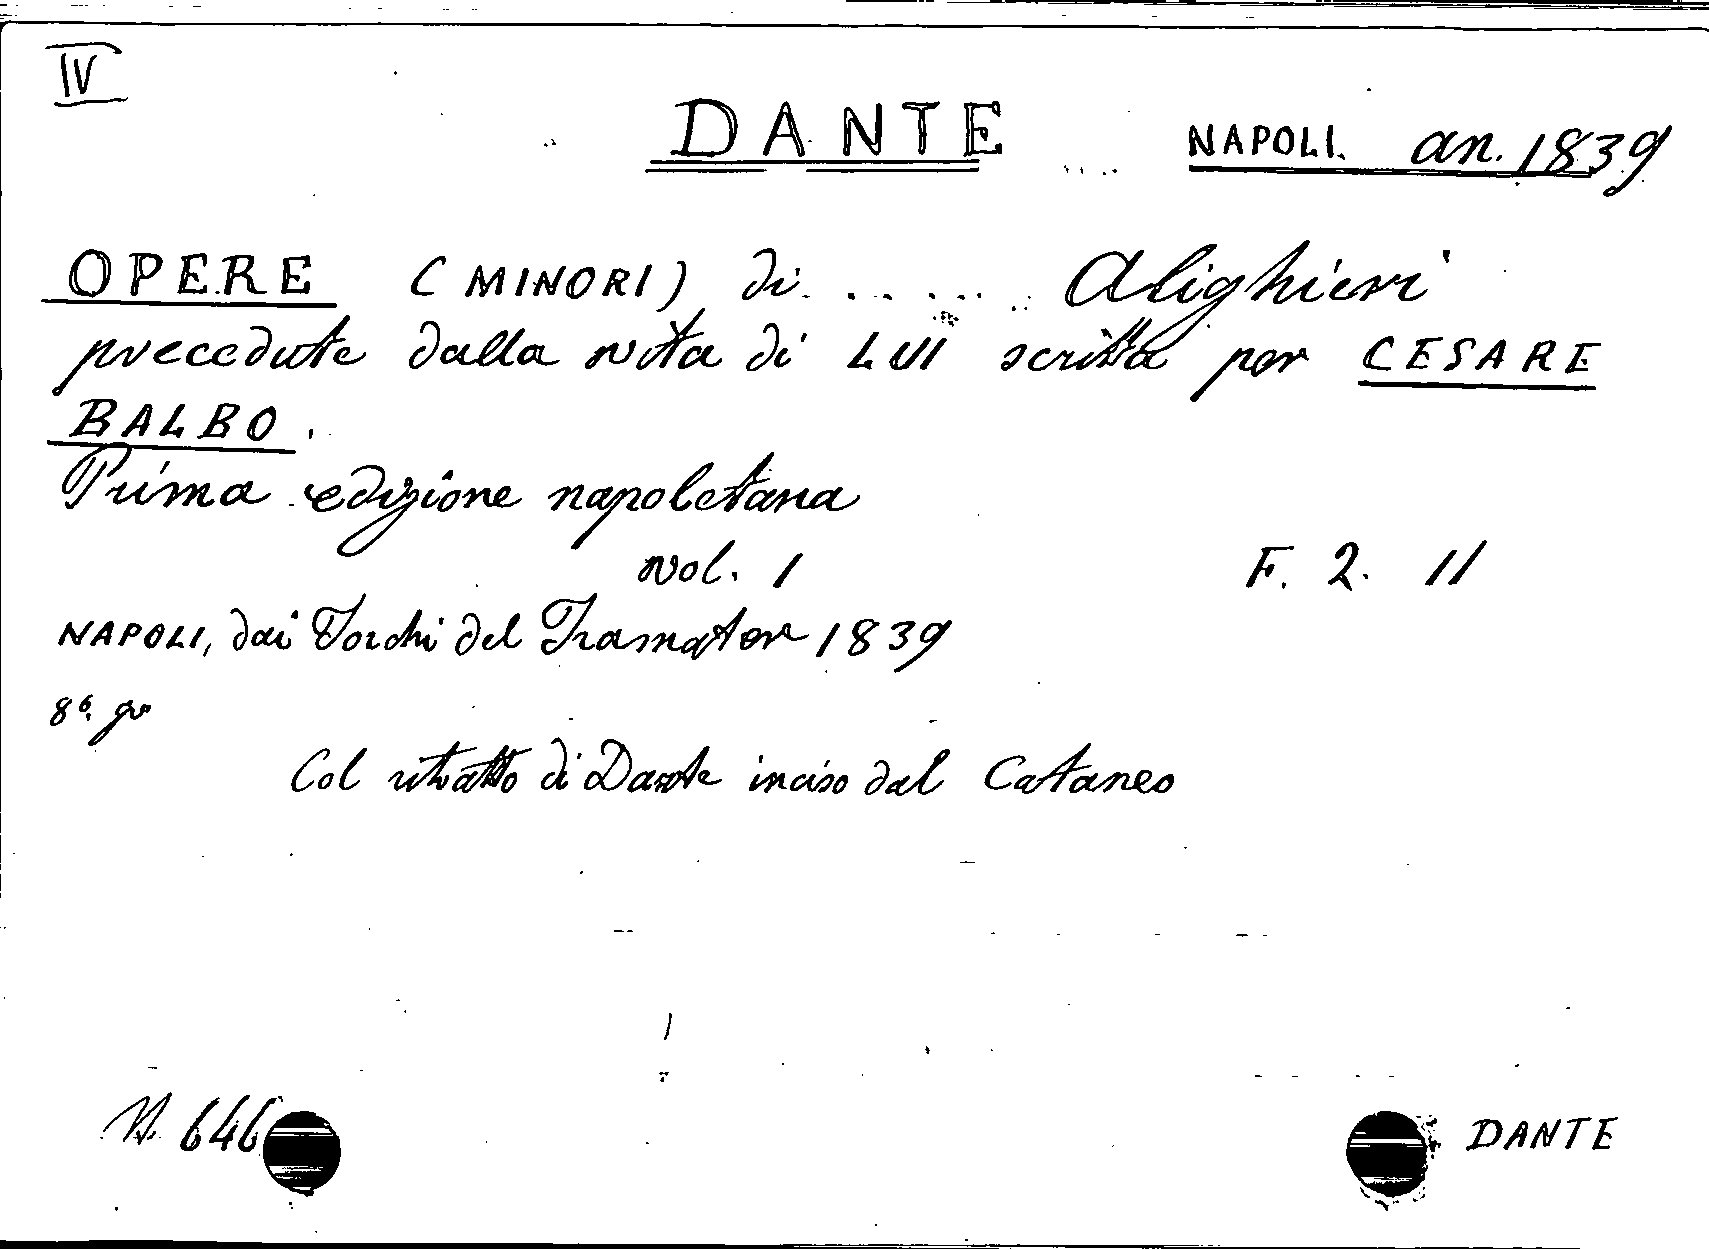 IV
DANTE NAPOLI. an. 1839
OPERE (MINORI) di ...... Alighieri
precedute dalla vita di LUI scritta per CESARE
BALBO.
Prima edizione napoletana
vol. 1 F. 2. 11
NAPOLI, dai Torchi del Tramater 1839
8º. gr
Col ritratto di Dante inciso dal Cataneo
N. 646
DANTE